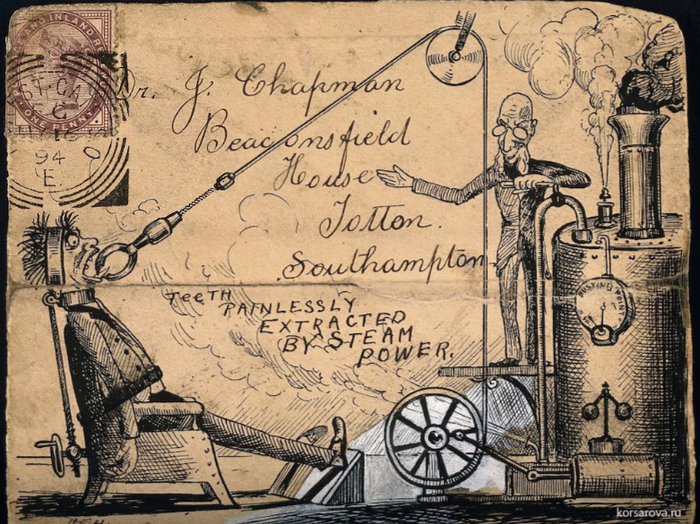 INLAND
ONE PENNY
C
94
E
Dr. J. Chapman
Beaconsfield
House
Totton.
Southampton
TEETH
PAINLESSLY
EXTRACTED
BY STEAM
POWER.
korsarova.ru